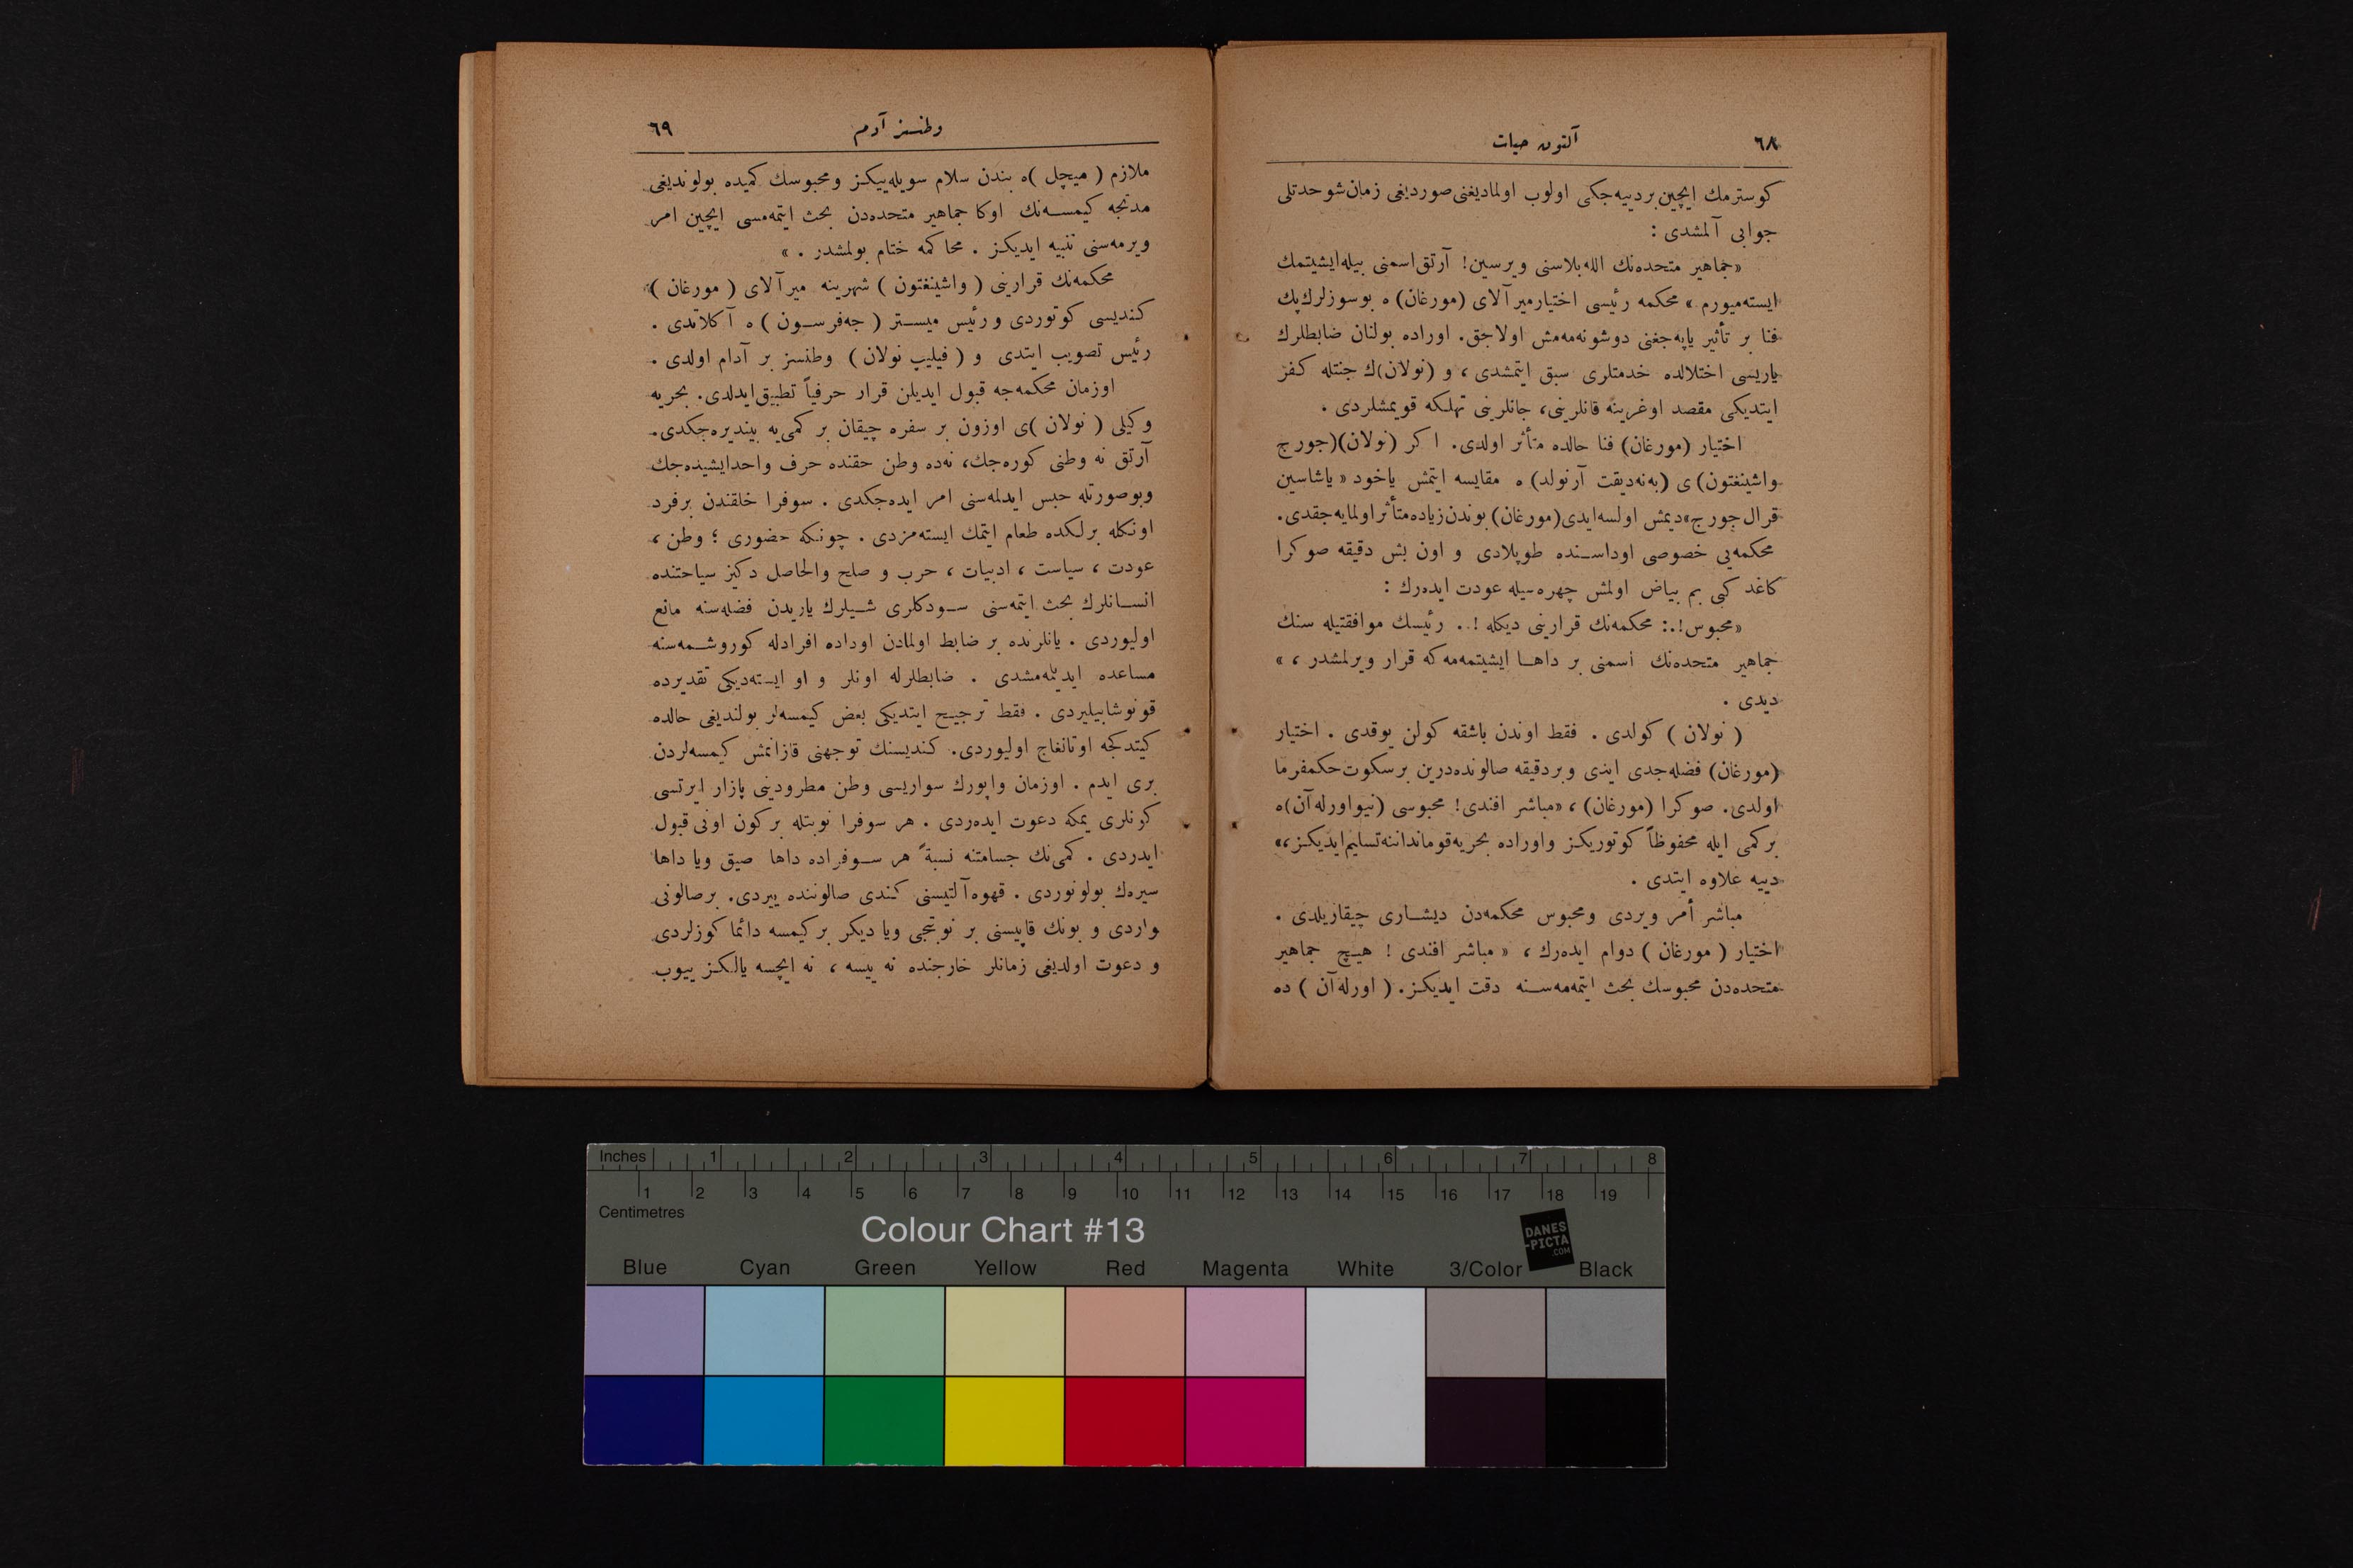 ٦٨
آلتون حيات
كوسترمك ايچين برديیه‌جكی اولوب اولماديغنی صورديغی زمان شو حدتلی
جوابی آلمشدی :
«جماهير متحده‌نك الله بلاسنی ويرسين! آرتق اسمنی بيله ايشيتمك
ايسته‌ميورم » محكمه رئيسی اختيار مير آلای (مورغان) ه بو سوزلرك پك
فنا بر تأثير ياپه‌جغنی دوشونه‌مه‌مش اولاجق. اوراده بولنان ضابطلرك
ياريسی اختلالده خدمتلری سبق ايتمشدی ، و (نولان)ك جنتله كفر
ايتديكی مقصد اوغرينه قانلرينی، جانلرينی تهلكه قويمشلردی .
اختيار (مورغان) فنا حالده متأثر اولدی. اكر (نولان)(جورج
واشينغتون) ی (به‌نه‌ديقت آرنولد) ه مقايسه ايتمش ياخود « ياشاسين
قرال جورج» ديمش اولسه‌ايدی (مورغان) بوندن زياده متأثر اولمايه‌جقدی.
محكمه‌يی خصوصی اوداسنده طوپلادی و اون بش دقيقه صوكرا
كاغد كبی بم بياض اولمش چهره‌سيله عودت ايده‌رك :
«محبوس!.: محكمه‌نك قرارينی ديكله !.. رئيسك موافقتيله سنك
جماهير متحده‌نك اسمنی بر داها ايشيتمه‌مه‌كه قرار ويرلمشدر ، »
ديدی .
( نولان ) كولدی . فقط اوندن باشقه كولن يوقدی . اختيار
(مورغان) فضله‌جدی ايدی وبردقيقه صالونده‌درين برسكوت حكمفرما
اولدی. صوكرا (مورغان) ، «مباشر افندی! محبوسی (نيواورله‌آن)ه
بركمی ايله محفوظاً كوتوريكز واوراده بحريه‌قوماندانه‌تسليم‌ايديكز،»
ديیه علاوه ايتدی .
مباشر أمر ويردی ومحبوس محكمه‌دن ديشاری چيقاريلدی .
اختيار ( مورغان ) دوام ايده‌رك ، « مباشر افندی ! هيچ جماهير
متحده‌دن محبوسك بحث ايتمه‌مه‌سنه دقت ايديكز. ( اورله‌آن ) ده
وطنسز آدم
٦٩
ملازم ( ميچل )ه بندن سلام سويله‌ييكز ومحبوسك كميده بولونديغی
مدتجه كيمسه‌نك اوكا جماهير متحده‌دن بحث ايتمه‌مسی ايچين امر
ويرمه‌سنی تنبيه ايديكز . محاكمه ختام بولمشدر . »
محكمه‌نك قرارينی ( واشينغتون ) شهرينه مير آلای ( مورغان )
كنديسی كوتوردی و رئيس ميستر ( جه‌فرسون ) ه آكلاتدی .
رئيس تصويب ايتدی و ( فيليپ نولان ) وطنسز بر آدام اولدی .
اوزمان محكمه‌جه قبول ايديلن قرار حرفياً تطبيق ايدلدی. بحريه
وكيلی ( نولان )ی اوزون بر سفره چيقان بر كمی‌يه بينديره‌جكدی.
آرتق نه وطنی كوره‌جك، نه‌ده وطن حقنده حرف واحدايشيده‌جك
وبوصورتله حبس ايدلمه‌سنی امر ايده‌جكدی . سوفرا خلقندن برفرد
اونكله برلكده طعام ايتمك ايسته‌مزدی . چونكه حضوری ؛ وطن ،
عودت ، سياست ، ادبيات ، حرب و صلح والحاصل دكيز سياحتنده
انسانلرك بحث ايتمه‌سنی سودكلری شيلرك ياريدن فضله‌سنه مانع
اوليوردی . يانلرنده بر ضابط اولمادن اوداده افرادله كوروشمه‌سنه
مساعده ايديلمه‌مشدی . ضابطلرله اونلر و او ايسته‌ديكی تقديرده
قونوشابيليردی . فقط ترجيح ايتديكی بعض كيمسه‌لر بولنديغی حالده
كيتدكجه اوتانغاج اوليوردی. كنديسنك توجهنی قازانمش كيمسه‌لردن
بری ايدم . اوزمان واپورك سواريسی وطن مطرودينی پازار ايرتسی
كونلری يمكه دعوت ايده‌ردی . هر سوفرا نوبتله بركون اونی قبول
ايدردی . كمی‌نك جسامتنه نسبةً هر سوفراده داها صيق ويا داها
سيره‌ك بولونوردی . قهوه‌آلتيسنی كندی صالوننده ييردی. برصالونی
واردی و بونك قاپيسنی بر نوبتجی ويا ديكر بركيمسه دائما كوزلردی
و دعوت اولديغی زمانلر خارجنده نه ييسه ، نه ايچسه يالكز ييوب
Inches 1 2 3 4 5 6 7 8
1 2 3 4 5 6 7 8 9 10 11 12 13 14 15 16 17 18 19
Centimetres
Colour Chart #13
DANES
-PICTA
.COM
Blue Cyan Green Yellow Red Magenta White 3/Color Black